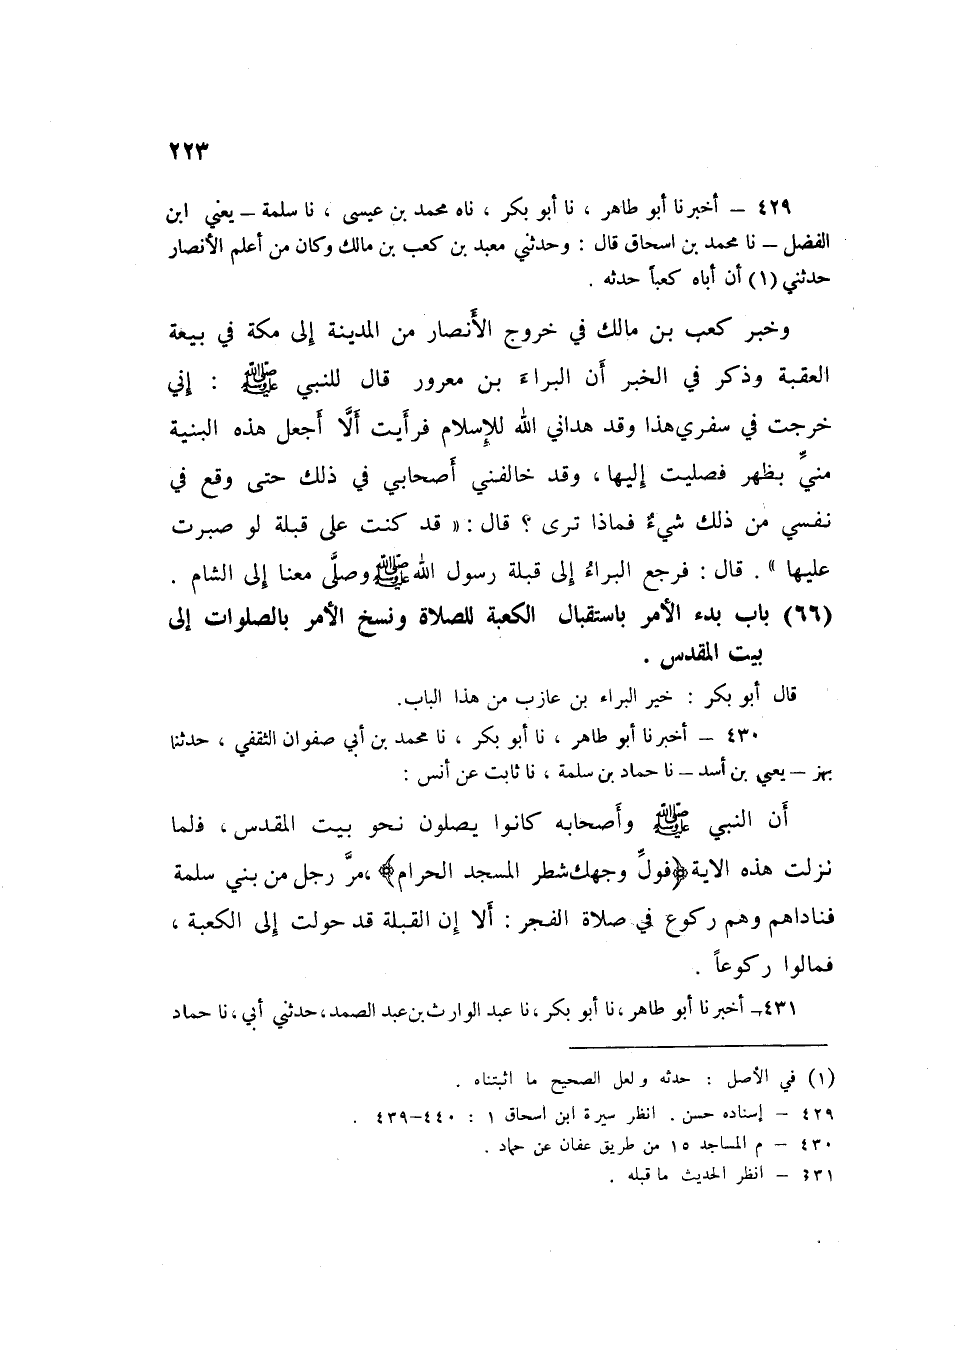 ٢٢٣
٤٢٩ – أخبرنا أبو طاهر ، نا أبو بكر ، ناه محمد بن عيسى ، نا سلمة – يعني ابن
الفضل – نا محمد بن اسحاق قال : وحدثني معبد بن كعب بن مالك وكان من أعلم الأنصار
حدثني (١) أن أباه كعباً حدثه .
وخبر كعب بن مالك في خروج الأنصار من المدينة إلى مكة في بيعة
العقبة وذكر في الخبر أن البراء بن معرور قال للنبي ﷺ : إني
خرجت في سفري هذا وقد هداني الله للإسلام فرأيت ألَّا أجعل هذه البنية
منيِّ بظهر فصليت إليها ، وقد خالفني أصحابي في ذلك حتى وقع في
نفسي من ذلك شيءٌ فماذا ترى ؟ قال : « قد كنت على قبلة لو صبرت
عليها » . قال : فرجع البراءُ إلى قبلة رسول الله ﷺ وصلَّى معنا إلى الشام .
(٦٦) باب بدء الأمر باستقبال الكعبة للصلاة ونسخ الأمر بالصلوات إلى
بيت المقدس .
قال أبو بكر : خير البراء بن عازب من هذا الباب.
٤٣٠ – أخبرنا أبو طاهر ، نا أبو بكر ، نا محمد بن أبي صفوان الثقفي ، حدثنا
بهز – يعي بن أسد – نا حماد بن سلمة ، نا ثابت عن أنس :
أن النبي ﷺ وأصحابه كانوا يصلون نحو بيت المقدس ، فلما
نزلت هذه الاية ﴿فولِّ وجهك شطر المسجد الحرام﴾ ،مرَّ رجل من بني سلمة
فناداهم وهم ركوع في صلاة الفجر : ألا إن القبلة قد حولت إلى الكعبة ،
فمالوا ركوعاً .
٤٣١– أخبرنا أبو طاهر ،نا أبو بكر ،نا عبد الوارث بن عبد الصمد ،حدثني أبي ،نا حماد
(١) في الأصل : حدثه ولعل الصحيح ما اثبتناه .
٤٢٩ – إسناده حسن . انظر سيرة ابن اسحاق ١ : ٤٤٠–٤٣٩ .
٤٣٠ – م المساجد ١٥ من طريق عفان عن حماد .
٤٣١ – انظر الحديث ما قبله .